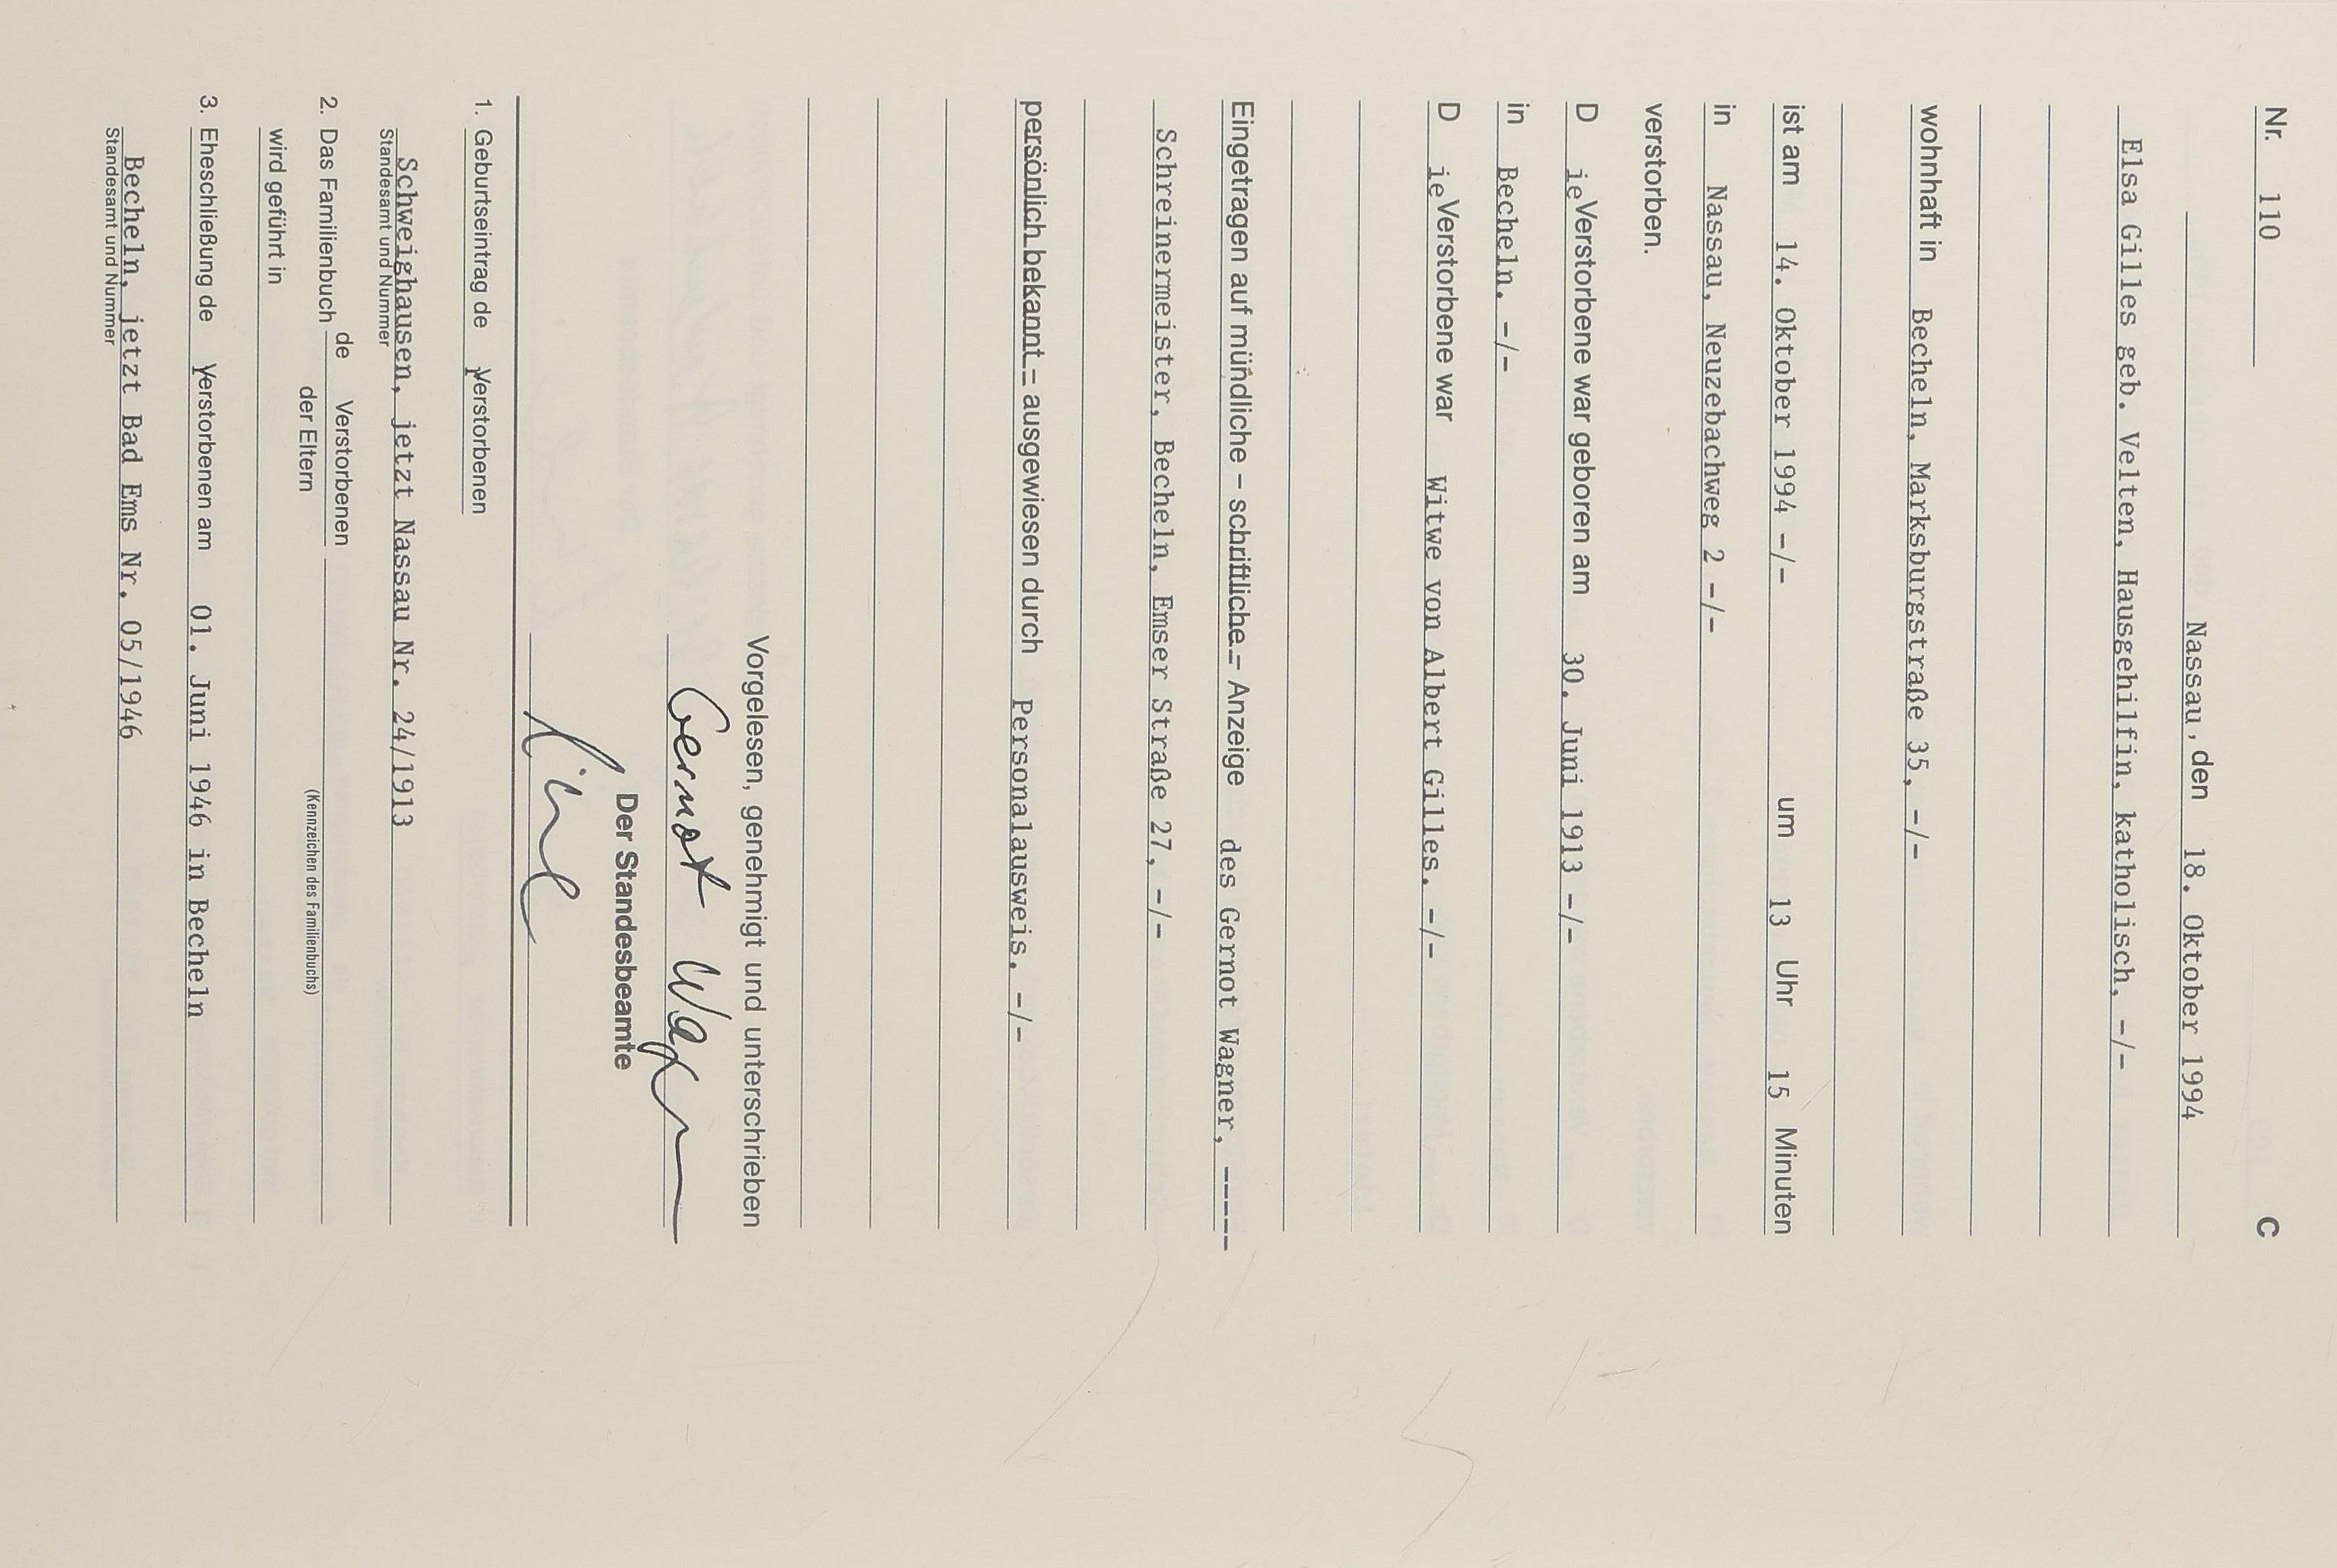 Nr. 110 C
Nassau, den 18. Oktober 1994
Elsa Gilles geb. Velten, Hausgehilfin, katholisch, -/-
wohnhaft in Becheln, Marksburgstraße 35, -/-
ist am 14. Oktober 1994 -/- um 13 Uhr 15 Minuten
in Nassau, Neuzebachweg 2 -/-
verstorben.
D ie Verstorbene war geboren am 30. Juni 1913 -/-
in Becheln. -/-
D ie Verstorbene war Witwe von Albert Gilles. -/-
Eingetragen auf mündliche – schriftliche – Anzeige des Gernot Wagner, -----
Schreinermeister, Becheln, Emser Straße 27, -/-
persönlich bekannt – ausgewiesen durch Personalausweis. -/-
Vorgelesen, genehmigt und unterschrieben
Gernot Wagner
Der Standesbeamte
1. Geburtseintrag de Verstorbenen
Schweighausen, jetzt Nassau Nr. 24/1913
Standesamt und Nummer
2. Das Familienbuch de Verstorbenen
der Eltern (Kennzeichen des Familienbuchs)
wird geführt in
3. Eheschließung de Verstorbenen am 01. Juni 1946 in Becheln
Becheln, jetzt Bad Ems Nr. 05/1946
Standesamt und Nummer